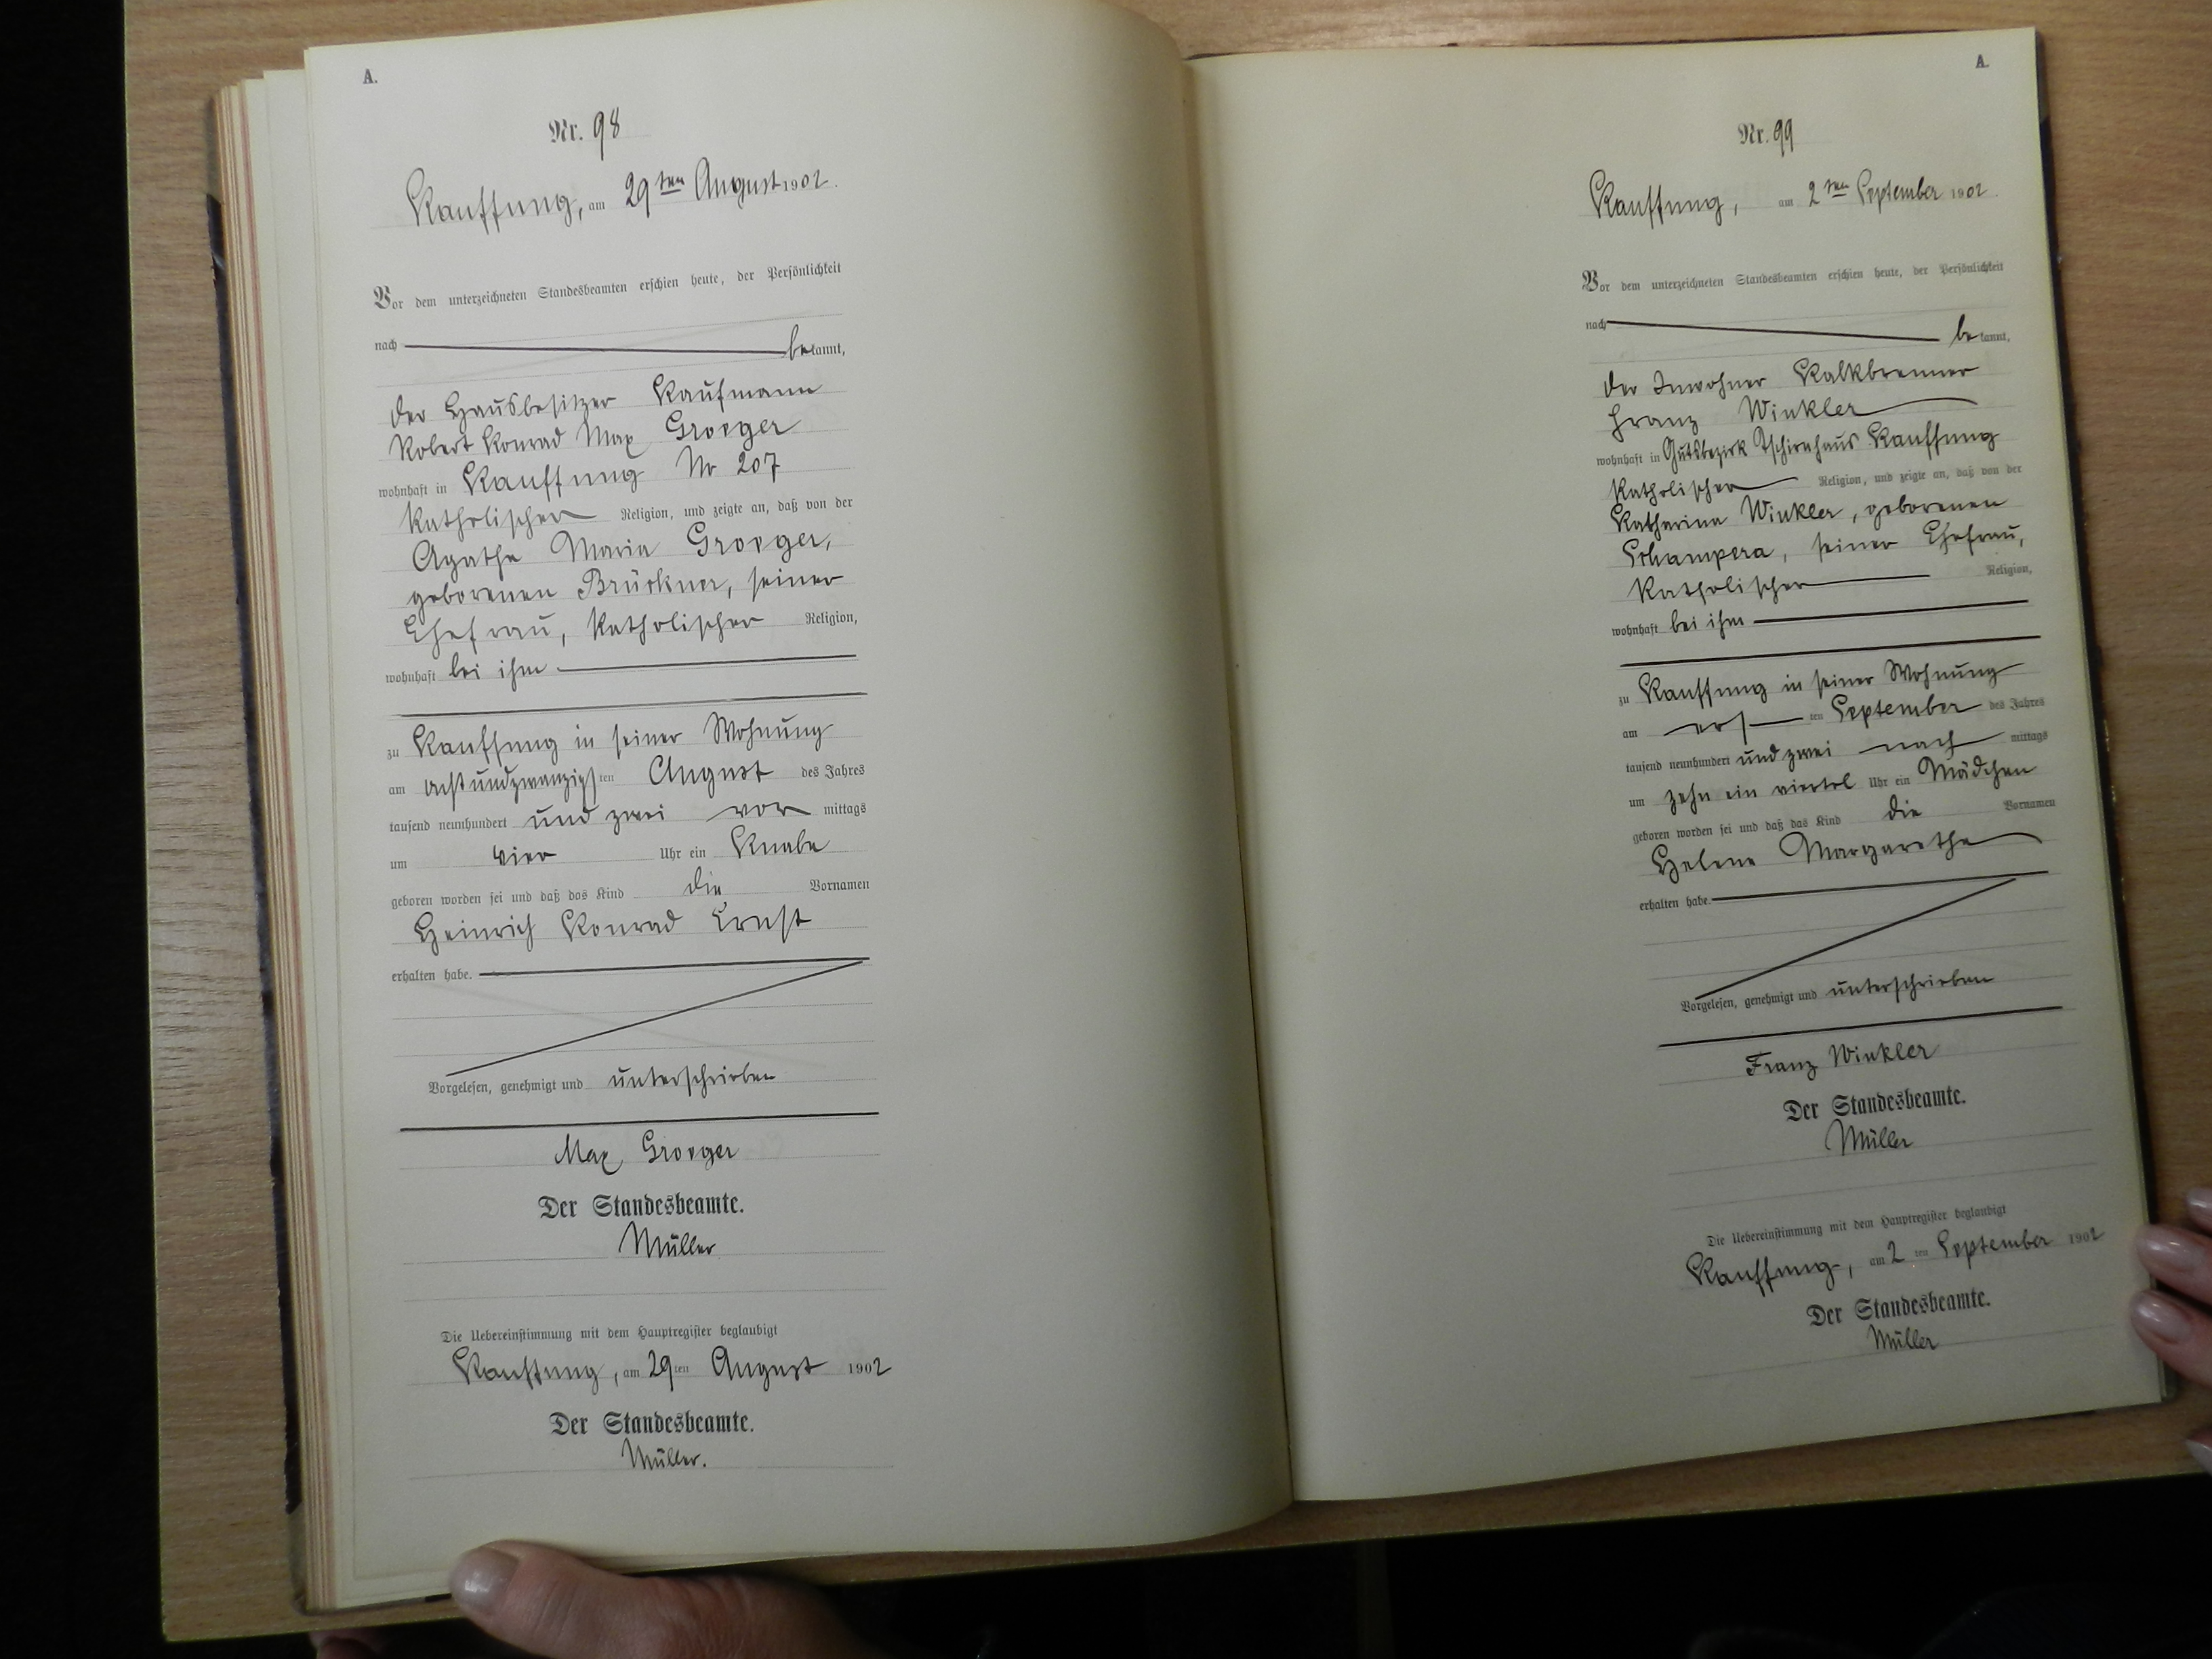 A.
Nr. 98
Kauffung, am 29ten August 1902.
Vor dem unterzeichneten Standesbeamten erschien heute, der Persönlichkeit
nach bekannt,
der Hausbesitzer Kaufmann
Robert Konrad Max Groeger
wohnhaft in Kauffung No 207
katholischer Religion, und zeigte an, daß von der
Agathe Maria Groeger,
geborenen Brückner, seiner
Ehefrau, katholischer Religion,
wohnhaft bei ihm
zu Kauffung in seiner Wohnung
am achtundzwanzigsten August des Jahres
tausend neunhundert und zwei vor mittags
um vier Uhr ein Knabe
geboren worden sei und daß das Kind die Vornamen
Heinrich Konrad Ernst
erhalten habe.
Vorgelesen, genehmigt und unterschrieben
Max Groeger
Der Standesbeamte.
Müller
Die Uebereinstimmung mit dem Hauptregister beglaubigt
Kauffung, am 29ten August 1902
Der Standesbeamte.
Müller.
A.
Nr. 99
Kauffung, am 2ten September 1902.
Vor dem unterzeichneten Standesbeamten erschien heute, der Persönlichkeit
nach bekannt,
der Inwohner Kalkbrenner
Franz Winkler
wohnhaft in Gutsbezirk Tschirnhaus Kauffung
katholischer Religion, und zeigte an, daß von der
Katharina Winkler, geborenen
Schampera, seiner Ehefrau,
katholischer Religion,
wohnhaft bei ihm
zu Kauffung in seiner Wohnung
am ersten September des Jahres
tausend neunhundert und zwei nach mittags
um zehn ein viertel Uhr ein Mädchen
geboren worden sei und daß das Kind die Vornamen
Helene Margarethe
erhalten habe.
Vorgelesen, genehmigt und unterschrieben
Franz Winkler
Der Standesbeamte.
Müller
Die Uebereinstimmung mit dem Hauptregister beglaubigt
Kauffung, am 2ten September 1902
Der Standesbeamte.
Müller